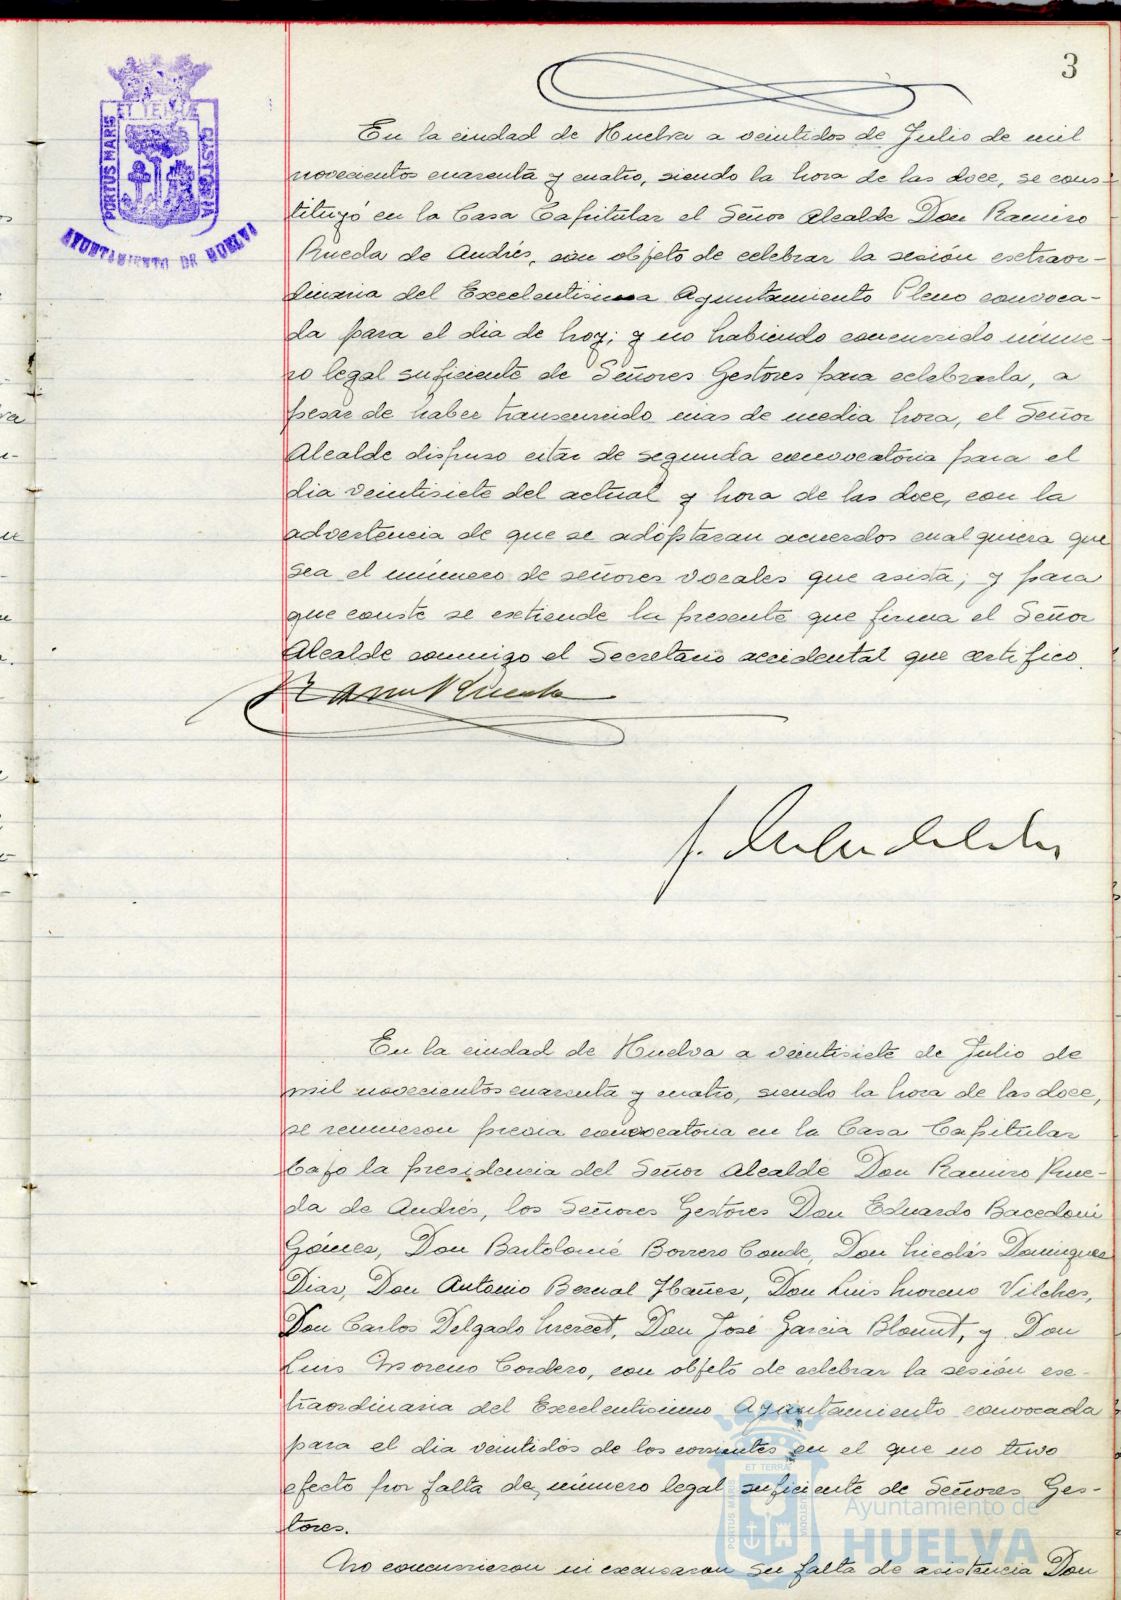 3
PORTUS MARIS ET TERRÆ CUSTODIA
AYUNTAMIENTO DE HUELVA
En la ciudad de Huelva a veintidos de Julio de mil
novecientos cuarenta y cuatro, siendo la hora de las doce, se cons-
tituyó en la Casa Capitular el Señor Alcalde Don Ramiro
Rueda de Andrés, con objeto de celebrar la sesión extraor-
dinaria del Excelentisima Ayuntamiento Pleno convoca-
da para el dia de hoy; y no habiendo concurrido núme-
ro legal suficiente de Señores Gestores para celebrarla, a
pesar de haber transcurrido mas de media hora, el Señor
Alcalde dispuso citar de segunda convocatoria para el
dia veintisiete del actual y hora de las doce, con la
advertencia de que se adoptaran acuerdos cualquiera que
sea el número de señores vocales que asista; y para
que conste se extiende la presente que firma el Señor
Alcalde conmigo el Secretario accidental que certifico.
En la ciudad de Huelva a veintisiete de Julio de
mil novecientos cuarenta y cuatro, siendo la hora de las doce,
se reunieron previa convocatoria en la Casa Capitular
bajo la presidencia del Señor Alcalde Don Ramiro Rue-
da de Andrés, los Señores Gestores Don Eduardo Bacedoni
Gómes, Don Bartolomé Borrero Conde, Don Nicolás Domingues
Dias, Don Antonio Bernal Ibañes, Don Luis Moreno Vilches,
Don Carlos Delgado Mercet, Don José Garcia Blount, y Don
Luis Moreno Cordero, con objeto de celebrar la sesión ex-
traordinaria del Excelentisimo Ayuntamiento convocada
para el dia veintidos de los corrientes en el que no tuvo
efecto por falta de número legal suficiente de Señores Ges-
tores.
No concurrieron ni excusaron su falta de asistencia Don
PORTUS MARIS ET TERRÆ CUSTODIA
Ayuntamiento de
HUELVA